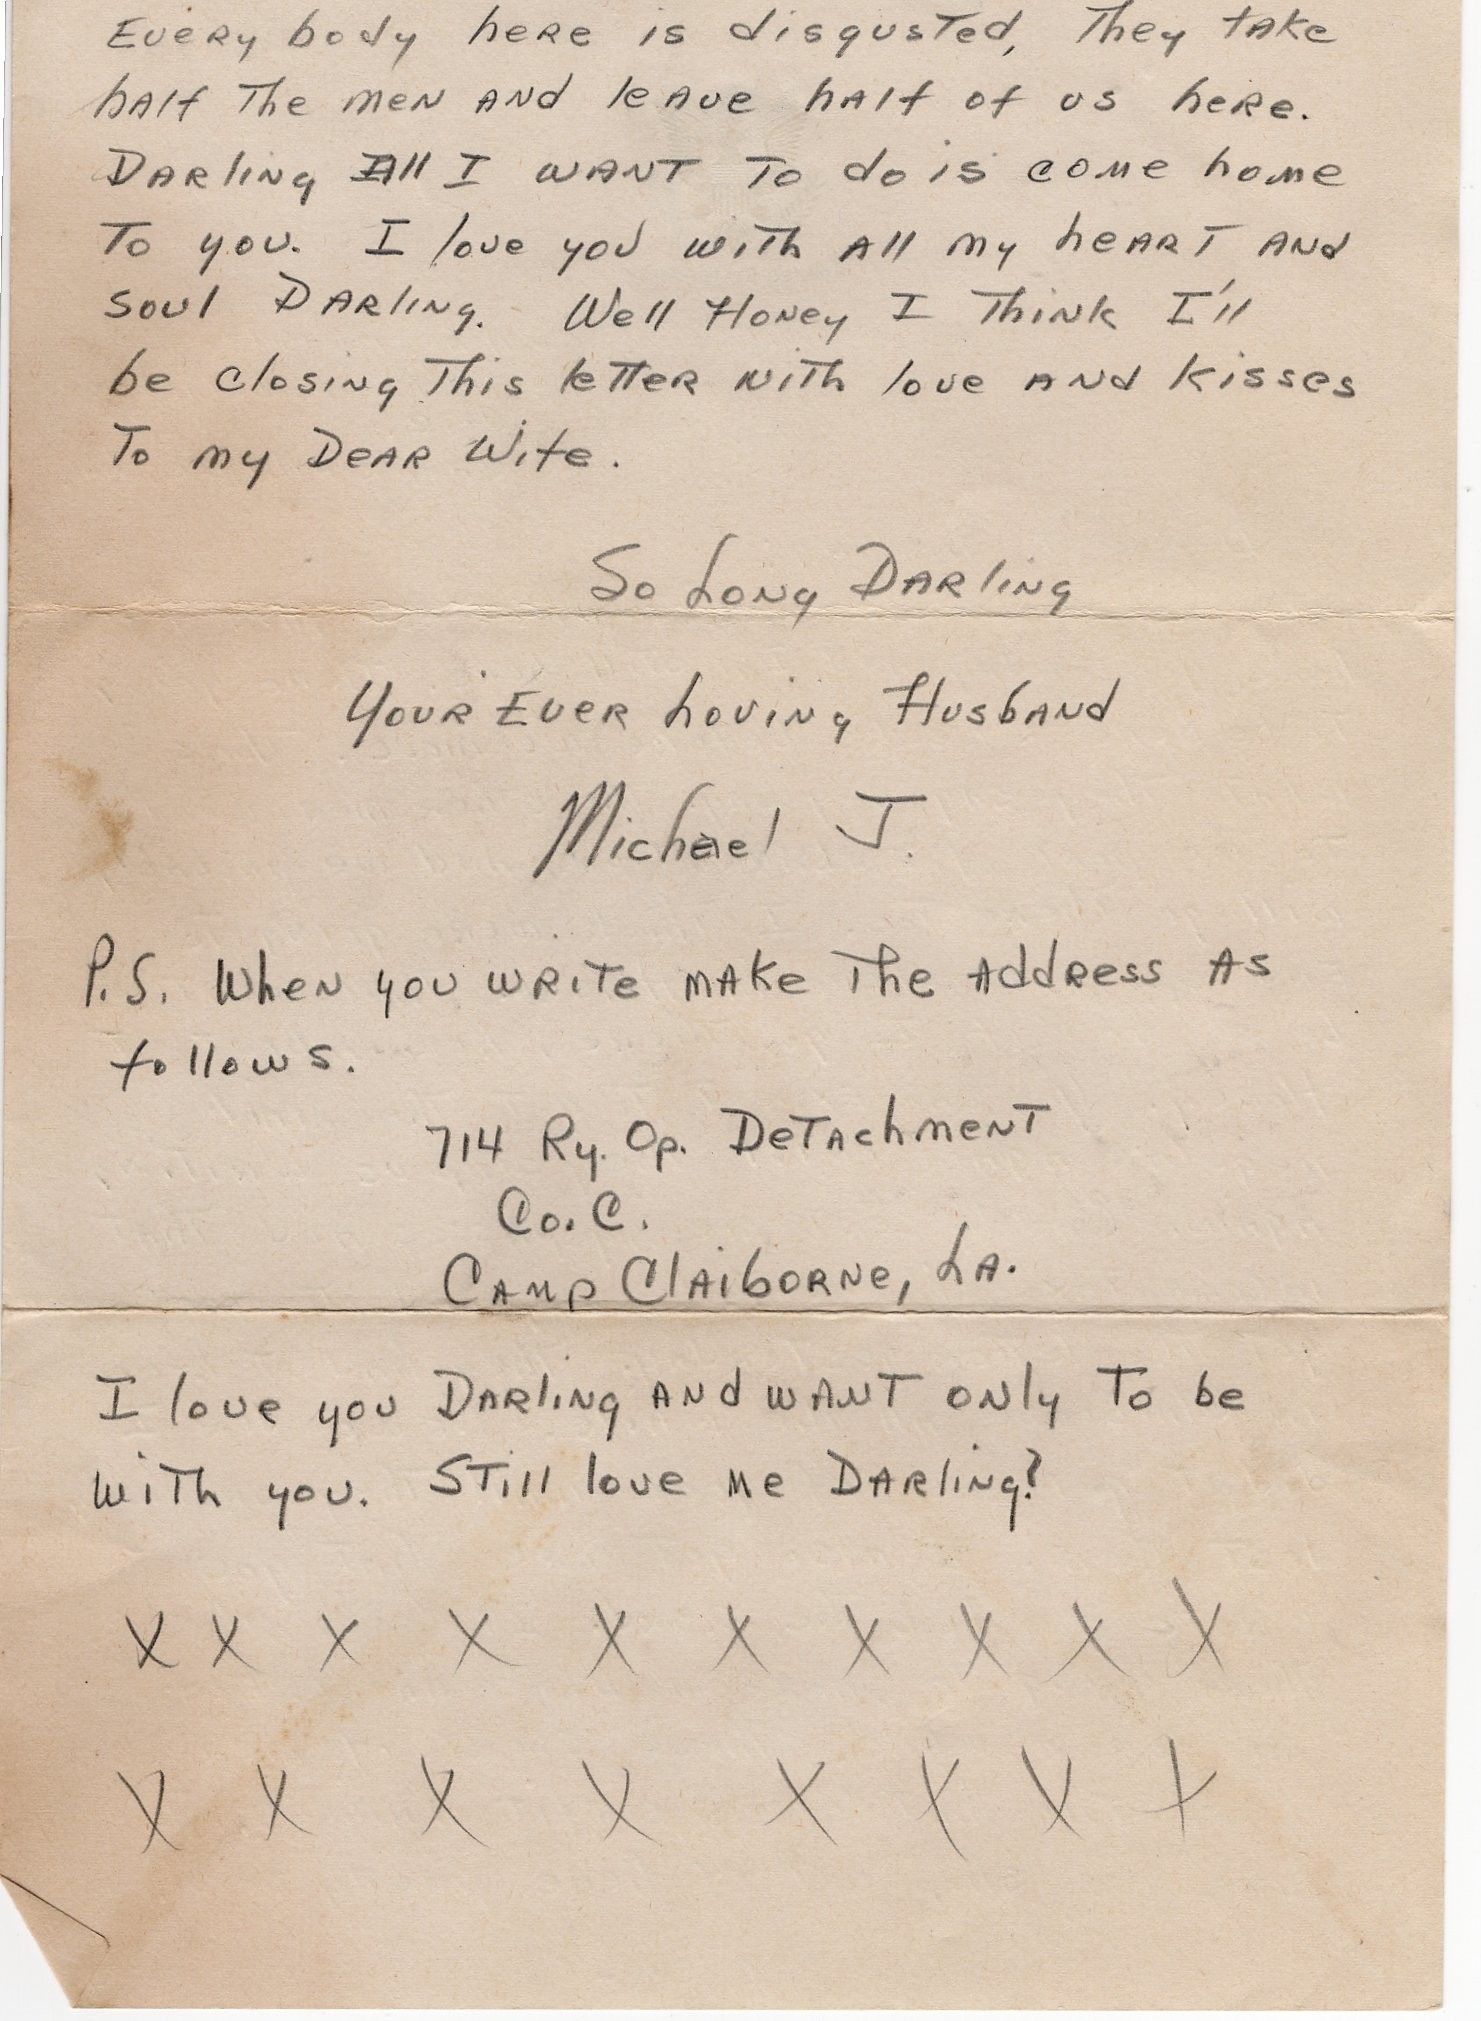 Every body here is disgusted, They take
half The men and leave half of us here.
Darling All I want To do is come home
To you. I love you with all my heart and
soul Darling. Well Honey I Think I'll
be closing This letter with love and kisses
To my Dear Wife.
So Long Darling
Your Ever Loving Husband
Michael J.
P.S. When you write make The address as
follows.
714 Ry. Op. Detachment
Co. C.
Camp Claiborne, La.
I love you Darling and want only To be
with you. Still love me Darling?
X X X X X X X X X X
X X X X X X X X